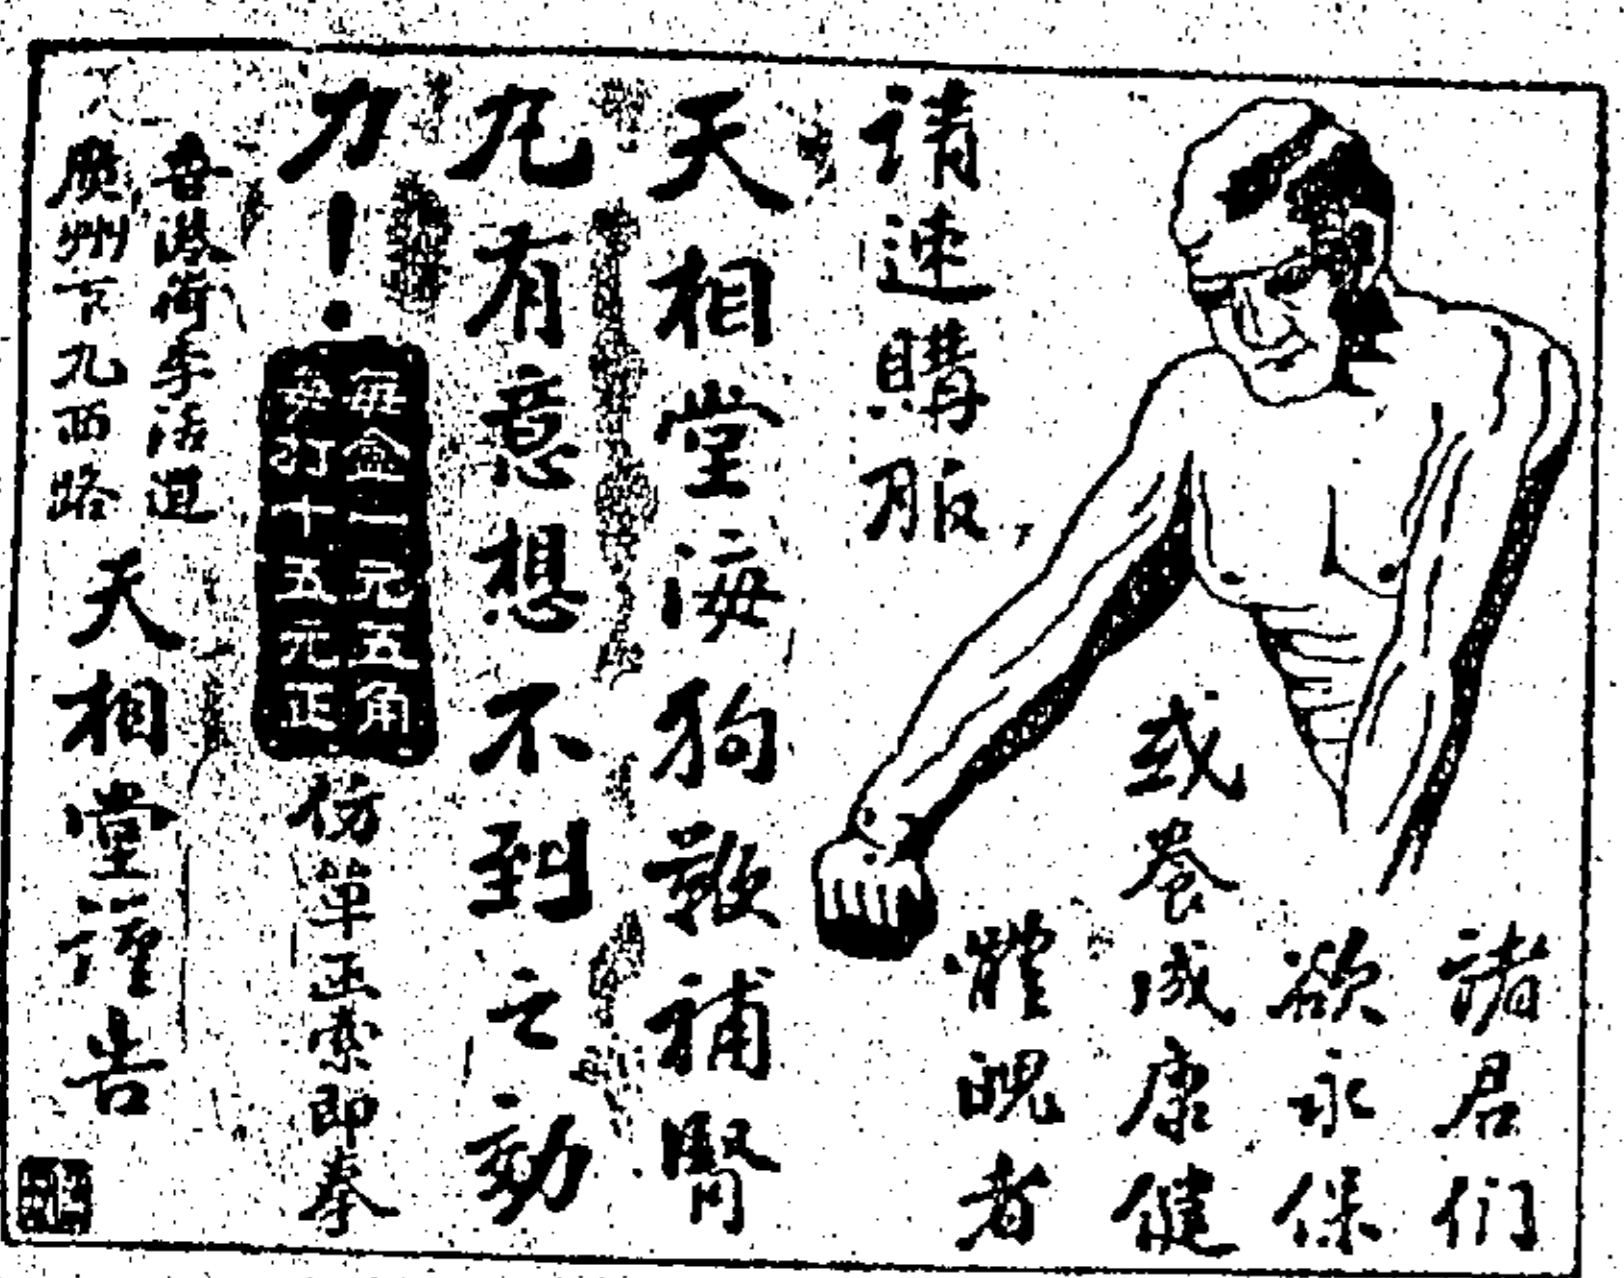 諸君们
欲永保
或養成康健
體魄者
请速購服
天相堂海狗鞭補腎
丸有意想不到之効
力！
每盒一元五角
每打十五元正
仿單函索即奉
香港荷李活道
廣州下九西路
天相堂謹告